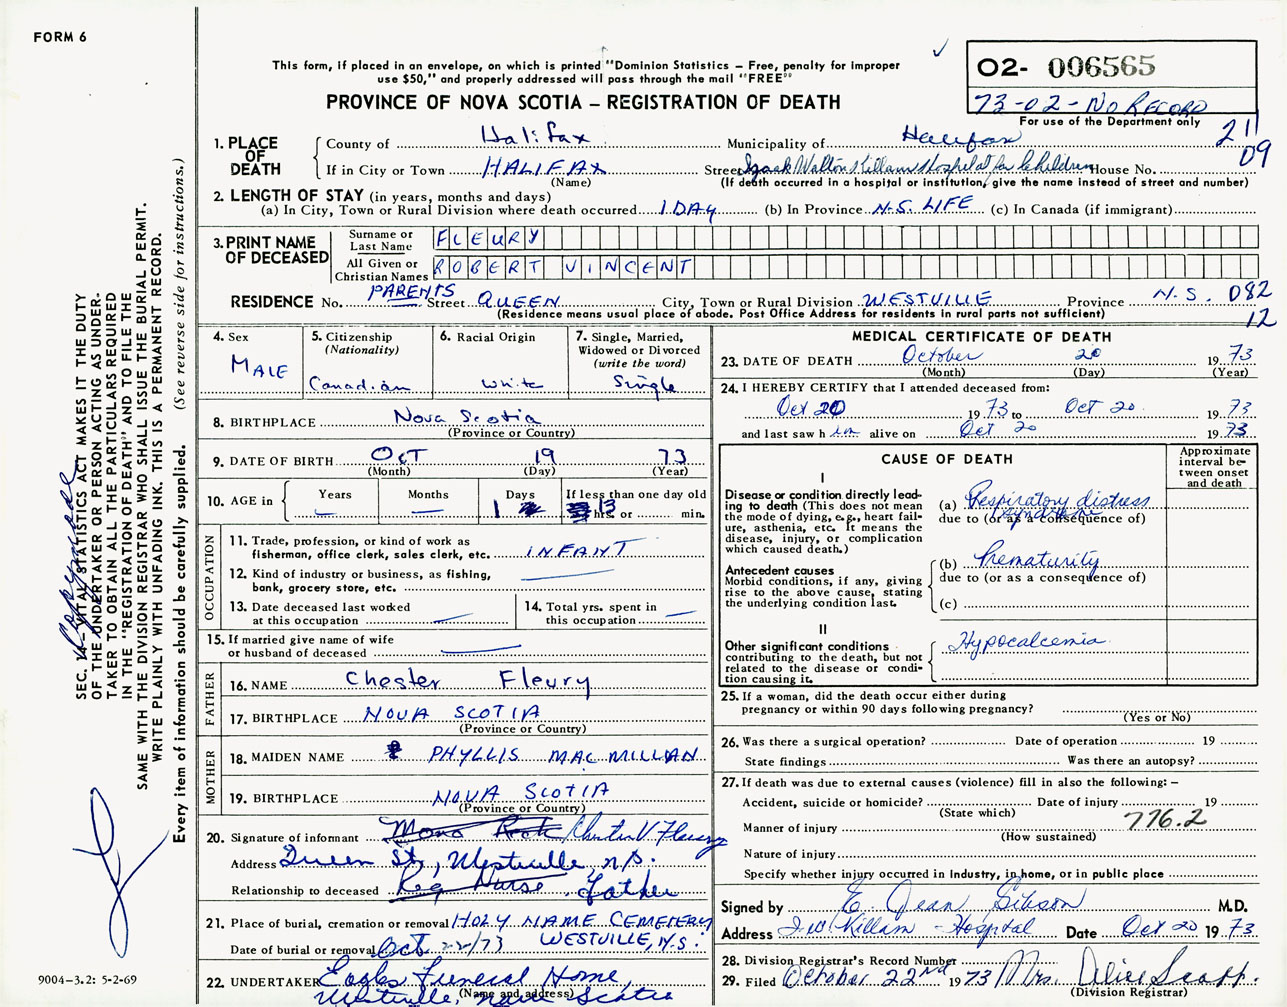 FORM 6
This form, if placed in an envelope, on which is printed "Dominion Statistics – Free, penalty for improper
use $50," and properly addressed will pass through the mail "FREE"
PROVINCE OF NOVA SCOTIA – REGISTRATION OF DEATH
02- 006565
73-02-No RECORD
For use of the Department only
211
09
1. PLACE OF DEATH
County of Halifax Municipality of Halifax
If in City or Town HALIFAX Street Izaak Walton Killam Hospital for Children House No.
(Name) (If death occurred in a hospital or institution, give the name instead of street and number)
2. LENGTH OF STAY (in years, months and days)
(a) In City, Town or Rural Division where death occurred 1 DAY (b) In Province N.S. LIFE (c) In Canada (if immigrant)
3. PRINT NAME OF DECEASED
Surname or Last Name FLEURY
All Given or Christian Names ROBERT VINCENT
PARENTS
RESIDENCE No. Street QUEEN City, Town or Rural Division WESTVILLE Province N.S. 082
12
(Residence means usual place of abode. Post Office Address for residents in rural parts not sufficient)
4. Sex MALE
5. Citizenship (Nationality) Canadian
6. Racial Origin White
7. Single, Married, Widowed or Divorced (write the word) Single
8. BIRTHPLACE Nova Scotia
(Province or Country)
9. DATE OF BIRTH OCT 19 73
(Month) (Day) (Year)
10. AGE in Years – Months – Days 1 If less than one day old 13 hrs. or min.
OCCUPATION
11. Trade, profession, or kind of work as
fisherman, office clerk, sales clerk, etc. INFANT
12. Kind of industry or business, as fishing,
bank, grocery store, etc. –
13. Date deceased last worked
at this occupation –
14. Total yrs. spent in
this occupation –
15. If married give name of wife
or husband of deceased –
FATHER
16. NAME Chester Fleury
17. BIRTHPLACE NOVA SCOTIA
(Province or Country)
MOTHER
18. MAIDEN NAME PHYLLIS MACMILLAN
19. BIRTHPLACE NOVA SCOTIA
(Province or Country)
20. Signature of informant Fleury
Address Queen St., Westville, N.S.
Relationship to deceased Reg Nurse Father
21. Place of burial, cremation or removal HOLY NAME CEMETERY
WESTVILLE, N.S.
Date of burial or removal Oct 22/73
22. UNDERTAKER Eagles Funeral Home
Westville, Nova Scotia
(Name and address)
MEDICAL CERTIFICATE OF DEATH
23. DATE OF DEATH October 20 1973
(Month) (Day) (Year)
24. I HEREBY CERTIFY that I attended deceased from:
Oct 20 1973 to Oct 20 1973
and last saw him alive on Oct 20 1973
CAUSE OF DEATH
Approximate interval between onset and death
I
Disease or condition directly lead-
ing to death (This does not mean
the mode of dying, e.g., heart fail-
ure, asthenia, etc. It means the
disease, injury, or complication
which caused death.)
(a) Respiratory distress syndrome
due to (or as a consequence of)
Antecedent causes
Morbid conditions, if any, giving
rise to the above cause, stating
the underlying condition last.
(b) Prematurity
due to (or as a consequence of)
(c)
II
Other significant conditions
contributing to the death, but not
related to the disease or condi-
tion causing it.
Hypocalcemia
25. If a woman, did the death occur either during
pregnancy or within 90 days following pregnancy?
(Yes or No)
26. Was there a surgical operation? Date of operation 19
State findings Was there an autopsy?
27. If death was due to external causes (violence) fill in also the following: –
Accident, suicide or homicide? Date of injury 19
(State which)
776.2
Manner of injury
(How sustained)
Nature of injury
Specify whether injury occurred in industry, in home, or in public place
Signed by E. Jean Gibson M.D.
Address I.W. Killam - Hospital Date Oct 20 1973
28. Division Registrar's Record Number
29. Filed October 22nd 1973 Mrs. Alice
(Division Registrar)
SEC. 14 – VITAL STATISTICS ACT MAKES IT THE DUTY
OF THE UNDERTAKER OR PERSON ACTING AS UNDER-
TAKER TO OBTAIN ALL THE PARTICULARS REQUIRED
IN THE "REGISTRATION OF DEATH" AND TO FILE THE
SAME WITH THE DIVISION REGISTRAR WHO SHALL ISSUE THE BURIAL PERMIT.
WRITE PLAINLY WITH UNFADING INK. THIS IS A PERMANENT RECORD.
Every item of information should be carefully supplied. (See reverse side for instructions.)
9004-3.2: 5-2-69